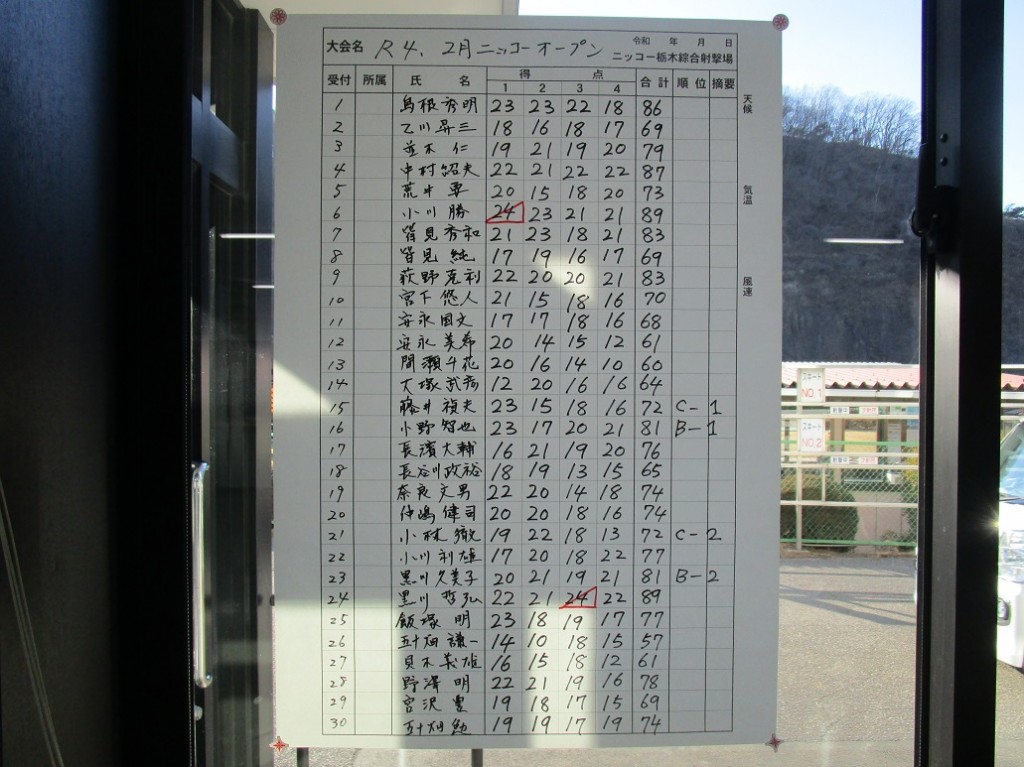 大会名 R4. 2月ニッコーオープン 令和 年 月 日
ニッコー栃木綜合射撃場
受付 所属 氏 名 得 点 合計 順位 摘要
1 2 3 4
天候
気温
風速
1 島根秀明 23 23 22 18 86
2 乙川昇三 18 16 18 17 69
3 並木仁 19 21 19 20 79
4 中村紹夫 22 21 22 22 87
5 荒井要 20 15 18 20 73
6 小川勝 24 23 21 21 89
7 皆見秀和 21 23 18 21 83
8 皆見純 17 19 16 17 69
9 荻野克利 22 20 20 21 83
10 宮下悠人 21 15 18 16 70
11 安永国文 17 17 18 16 68
12 安永美希 20 14 15 12 61
13 間瀬千花 20 16 14 10 60
14 大塚 12 20 16 16 64
15 藤井禎夫 23 15 18 16 72 C-1
16 小野智也 23 17 20 21 81 B-1
17 長濱大輔 16 21 19 20 76
18 長谷川政裕 18 19 13 15 65
19 奈良文男 22 20 14 18 74
20 仲嶋偉司 20 20 18 16 74
21 小林徹 19 22 18 13 72 C-2
22 小川利雄 17 20 18 22 77
23 黒川久美子 20 21 19 21 81 B-2
24 黒川哲弘 22 21 24 22 89
25 飯塚明 23 18 19 17 77
26 五十畑謙一 14 10 18 15 57
27 貝木英雄 16 15 18 12 61
28 野澤明 22 21 19 16 78
29 宮沢豊 19 18 17 15 69
30 五十畑勉 19 19 17 19 74
スキート
NO.1
スキート
NO.2